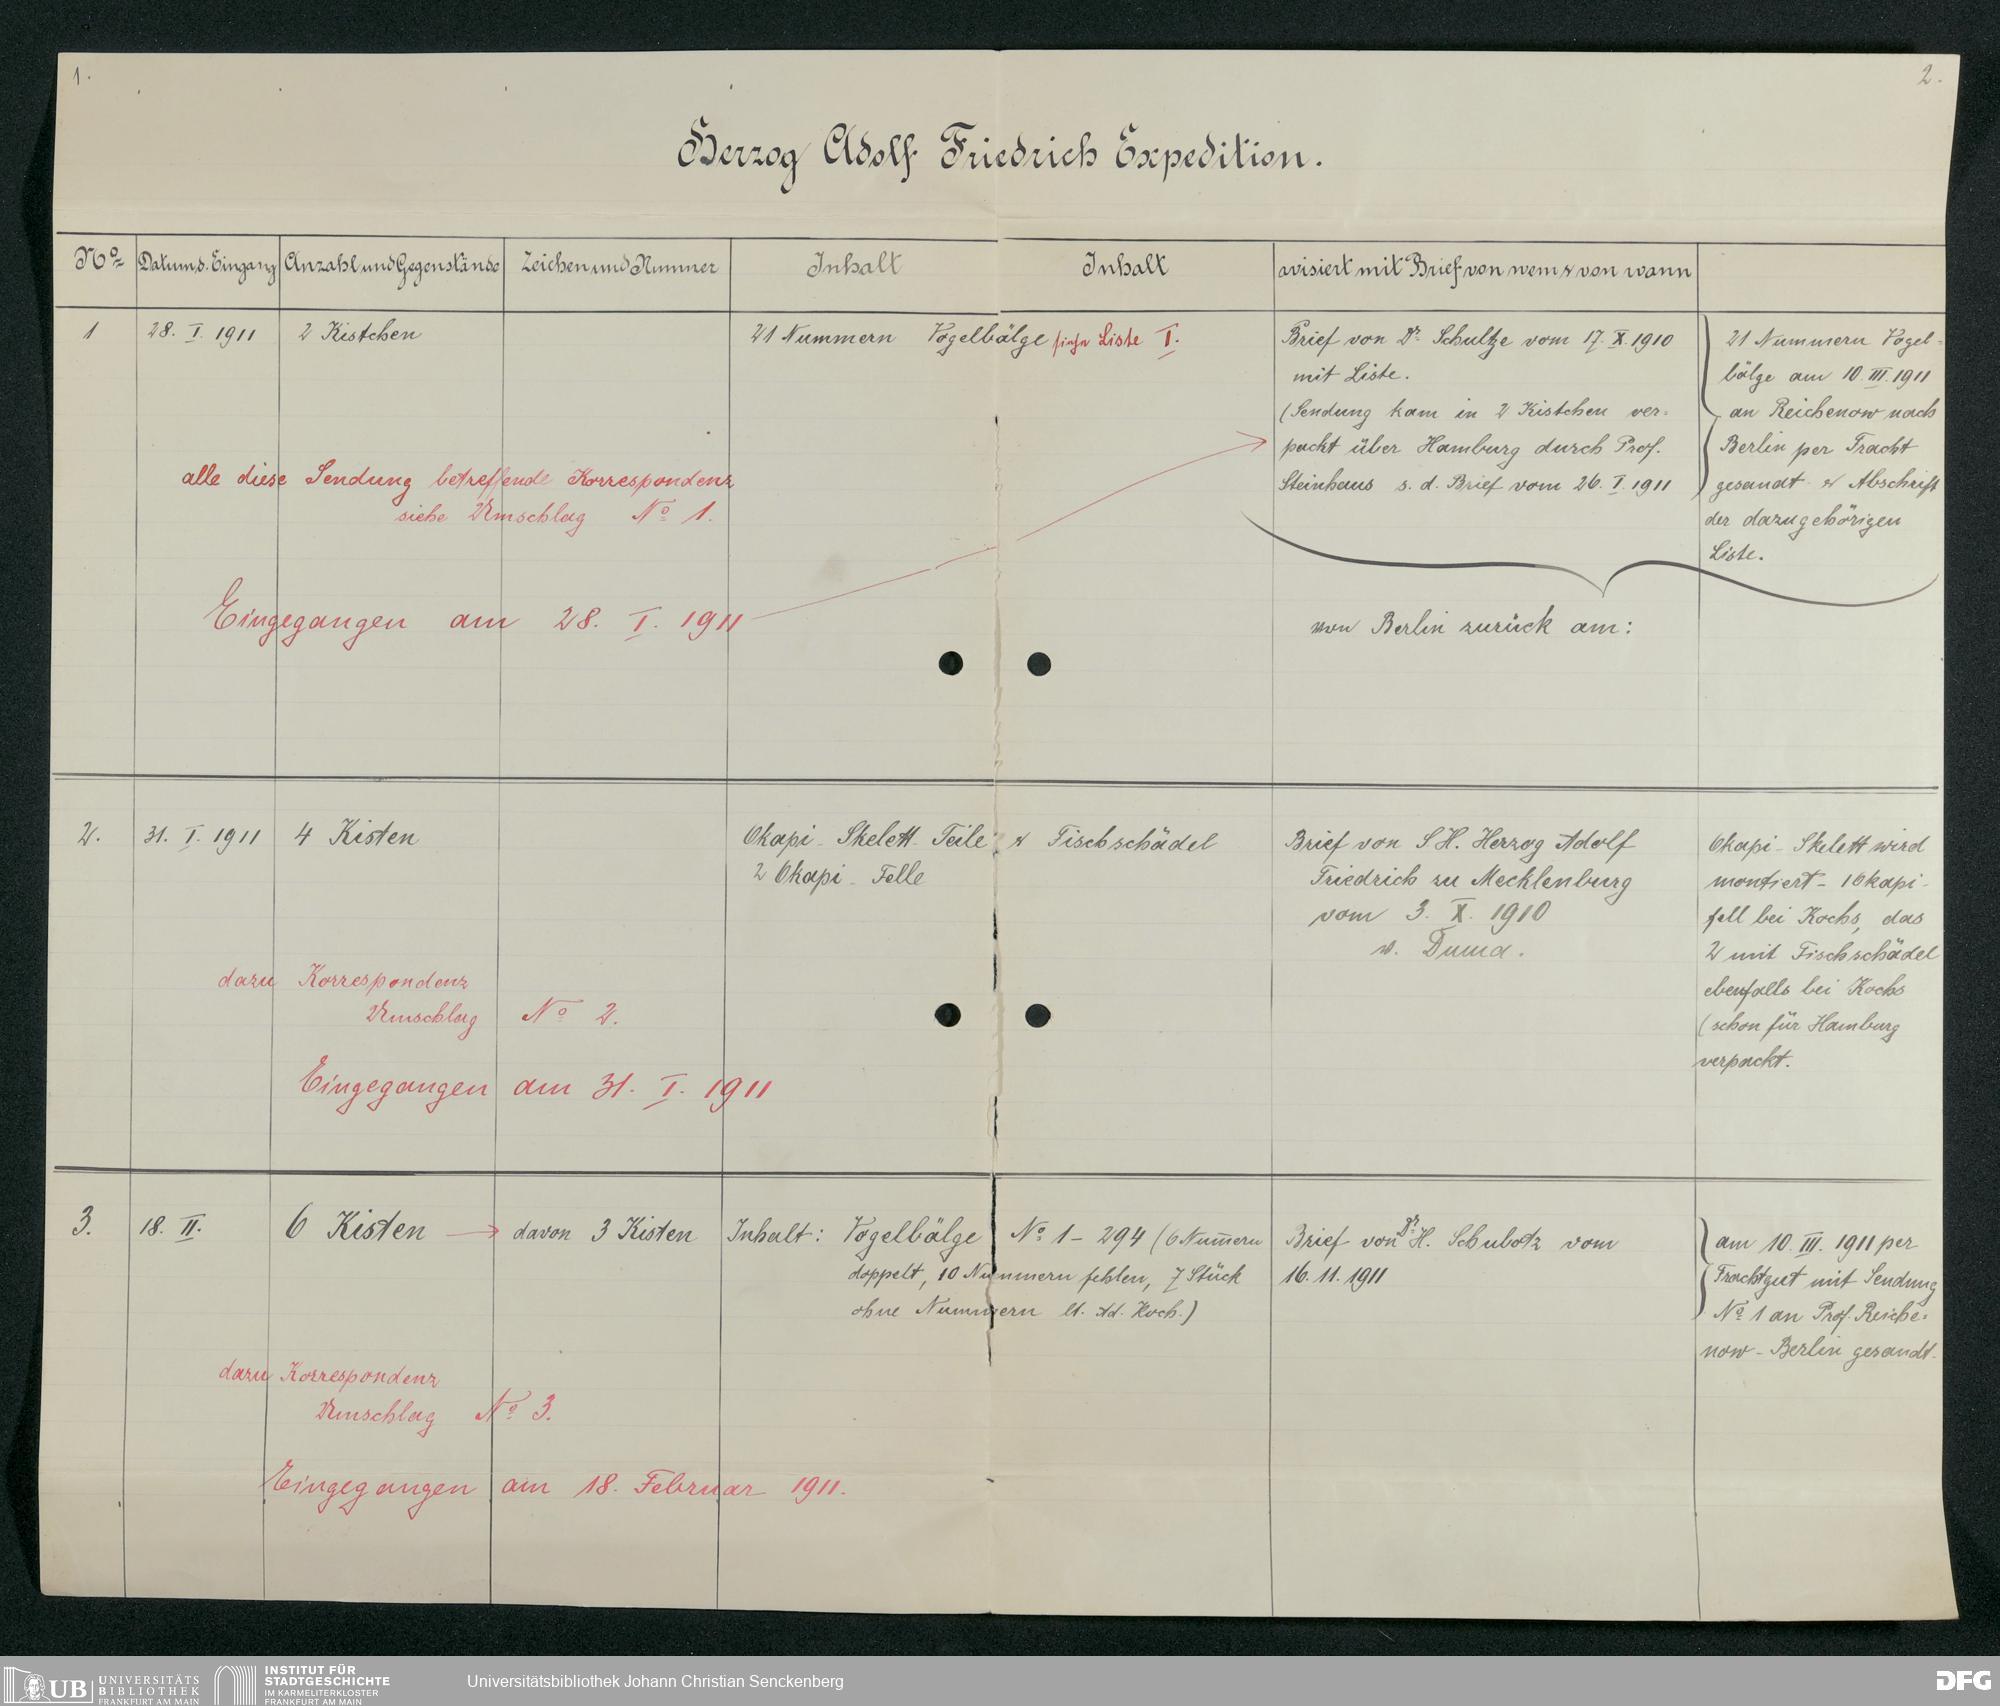 1.
2.
Herzog Adolf Friedrich Expedition.
No
Datum d. Eingang
Anzahl und Gegenstände
Zeichen und Nummer
Inhalt
Inhalt
avisiert mit Brief von wem & von wann
1
28. I. 1911
2 Kistchen
21 Nummern Vogelbälge siehe Liste I.
Brief von Dr. Schultze vom 17. X. 1910
mit Liste.
(Sendung kam in 2 Kistchen ver=
packt über Hamburg durch Prof.
Steinhaus s. d. Brief vom 26. I. 1911
21 Nummern Vogel=
bälge am 10. III. 1911
an Reichenow nach
Berlin per Fracht
gesandt & Abschrift
der dazugehörigen
Liste.
alle diese Sendung betreffende Korrespondenz
siehe Umschlag No 1.
Eingegangen am 28. I. 1911
von Berlin zurück am:
2.
31. I. 1911
4 Kisten
Okapi-Skelett-Teile & Fischschädel
2 Okapi-Felle
Brief von S. H. Herzog Adolf
Friedrich zu Mecklenburg
vom 3. X. 1910
v. Duma.
Okapi-Skelett wird
montiert - 1 Okapi-
fell bei Kochs, das
2 mit Fischschädel
ebenfalls bei Kochs
(schon für Hamburg
verpackt.
dazu Korrespondenz
Umschlag No 2.
Eingegangen am 31. I. 1911
3.
18. II.
6 Kisten
davon 3 Kisten
Inhalt: Vogelbälge No 1 - 294 (6 Nummern
doppelt, 10 Nummern fehlen, 7 Stück
ohne Nummern lt. Ad. Koch.)
Brief von Dr. H. Schubotz vom
16. 11. 1911
am 10. III. 1911 per
Frachtgut mit Sendung
No 1 an Prof. Reiche=
now - Berlin gesandt.
dazu Korrespondenz
Umschlag No 3.
Eingegangen am 18. Februar 1911.
UB
UNIVERSITÄTS
BIBLIOTHEK
FRANKFURT AM MAIN
INSTITUT FÜR
STADTGESCHICHTE
IM KARMELITERKLOSTER
FRANKFURT AM MAIN
Universitätsbibliothek Johann Christian Senckenberg
DFG